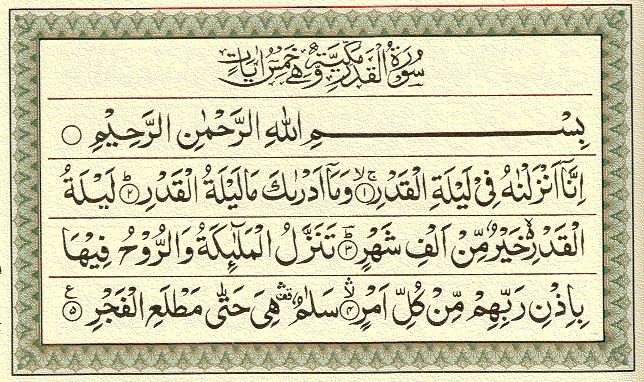 سُوْرَةُ الْقَدْرِ مَكِّيَّةٌ وَّهِيَ خَمْسُ اٰيَاتٍ
بِسْمِ اللّٰهِ الرَّحْمٰنِ الرَّحِيْمِ ۝
اِنَّاۤ اَنْزَلْنٰهُ فِيْ لَيْلَةِ الْقَدْرِ ۝١ۚۖ وَمَاۤ اَدْرٰىكَ مَا لَيْلَةُ الْقَدْرِ ۝٢ؕ لَيْلَةُ
الْقَدْرِ ۙ۬ خَيْرٌ مِّنْ اَلْفِ شَهْرٍ ۝٣ؕ تَنَزَّلُ الْمَلٰٓئِكَةُ وَالرُّوْحُ فِيْهَا
بِاِذْنِ رَبِّهِمْ مِّنْ كُلِّ اَمْرٍ ۝٤ۙۛ سَلٰمٌ ۛ۫ هِيَ حَتّٰى مَطْلَعِ الْفَجْرِ ۝٥ ع